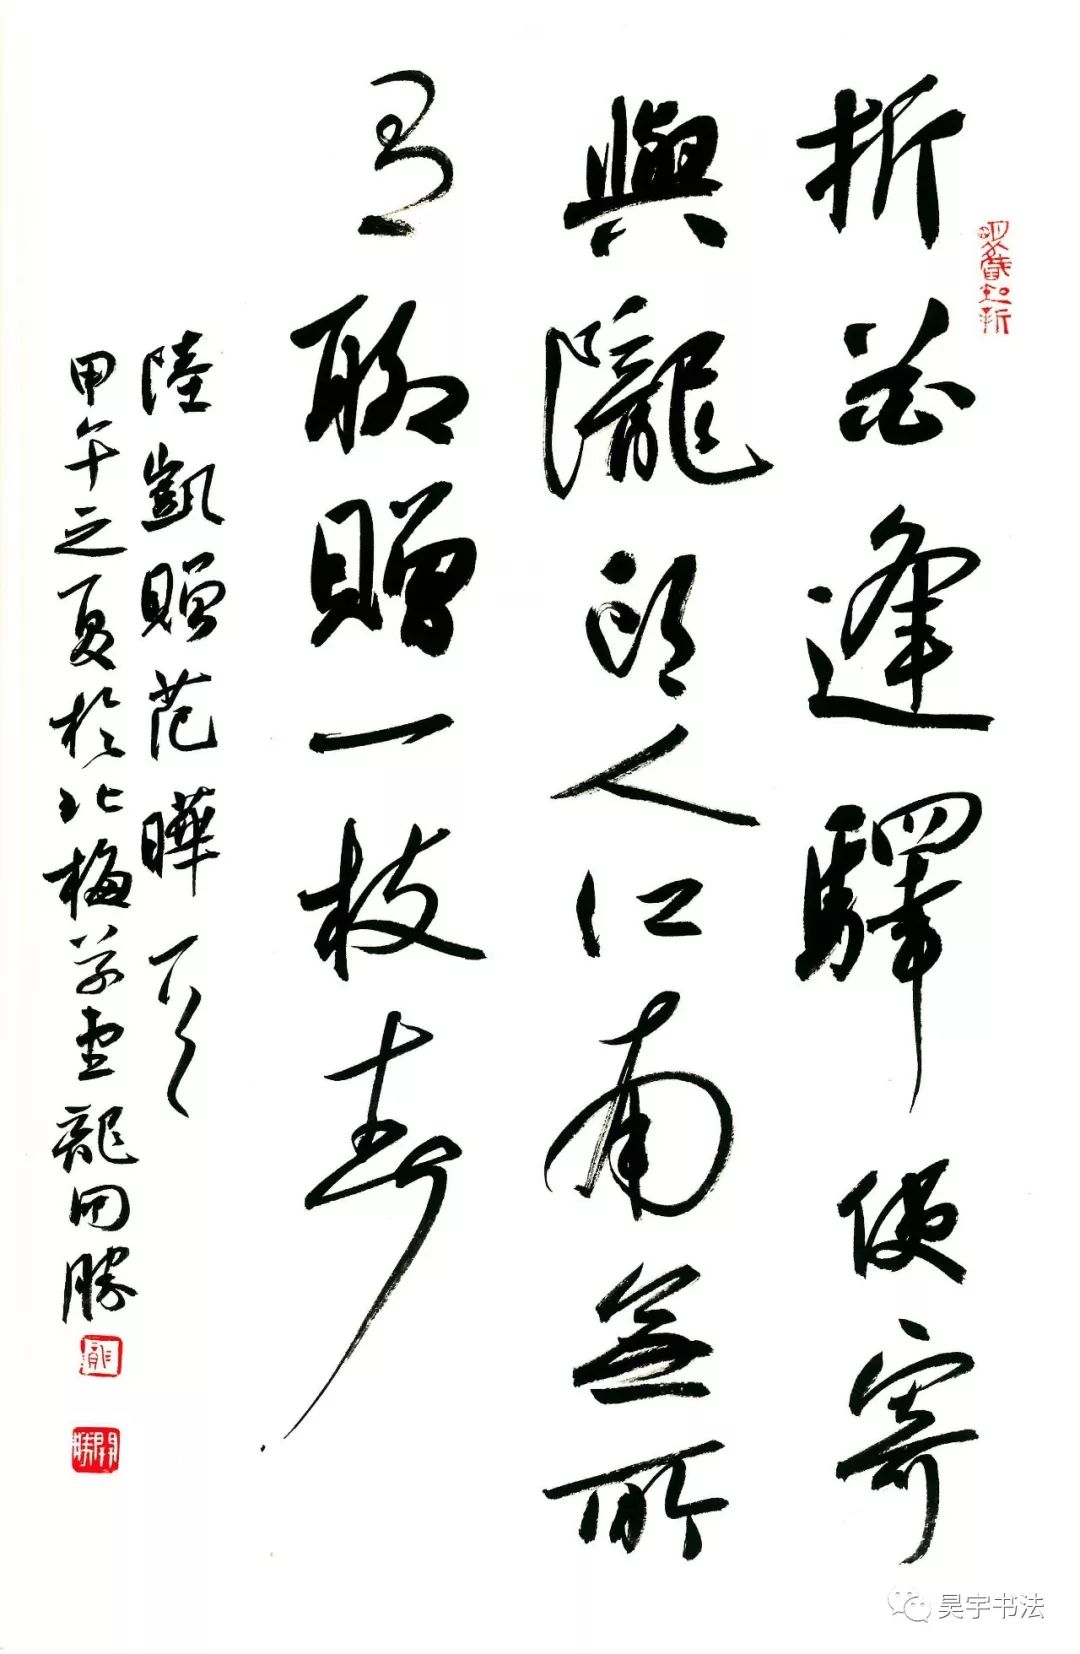 折花逢驛使寄
與隴頭人江南無所
有聊贈一枝春
陸凱贈范曄
甲午之夏於北梅草堂龍開勝
龍
開勝
昊宇书法